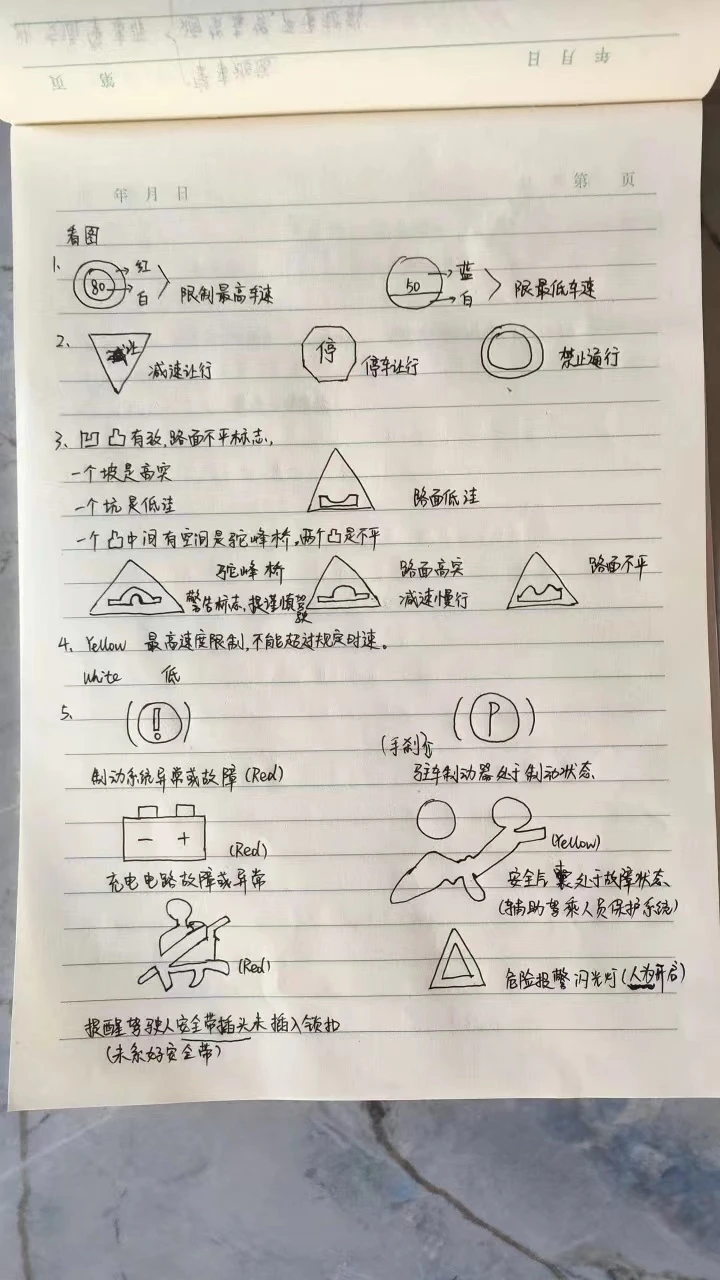 年 月 日
第 页
年 月 日
第 页
看图
1、 80 红 白 限制最高车速 50 蓝 白 限最低车速
2、 减速让行 停 停车让行 禁止通行
3、凹 凸 有致,路面不平标志,
一个坡是高突
一个坑是低洼 路面低洼
一个凸中间有空间是驼峰桥,两个凸是不平
驼峰桥 路面高突 路面不平
警告标志,提谨慎驾驶 减速慢行
4、Yellow 最高速度限制,不能超过规定时速。
white 低
5、 (!) (P)
(手刹)
制动系统异常或故障(Red) 驻车制动器处于制动状态
- + (Red) (Yellow)
充电电路故障或异常 安全气囊处于故障状态
(辅助驾乘人员保护系统)
(Red) 危险报警闪光灯(人为开启)
提醒驾驶人安全带插头未插入锁扣
(未系好安全带)